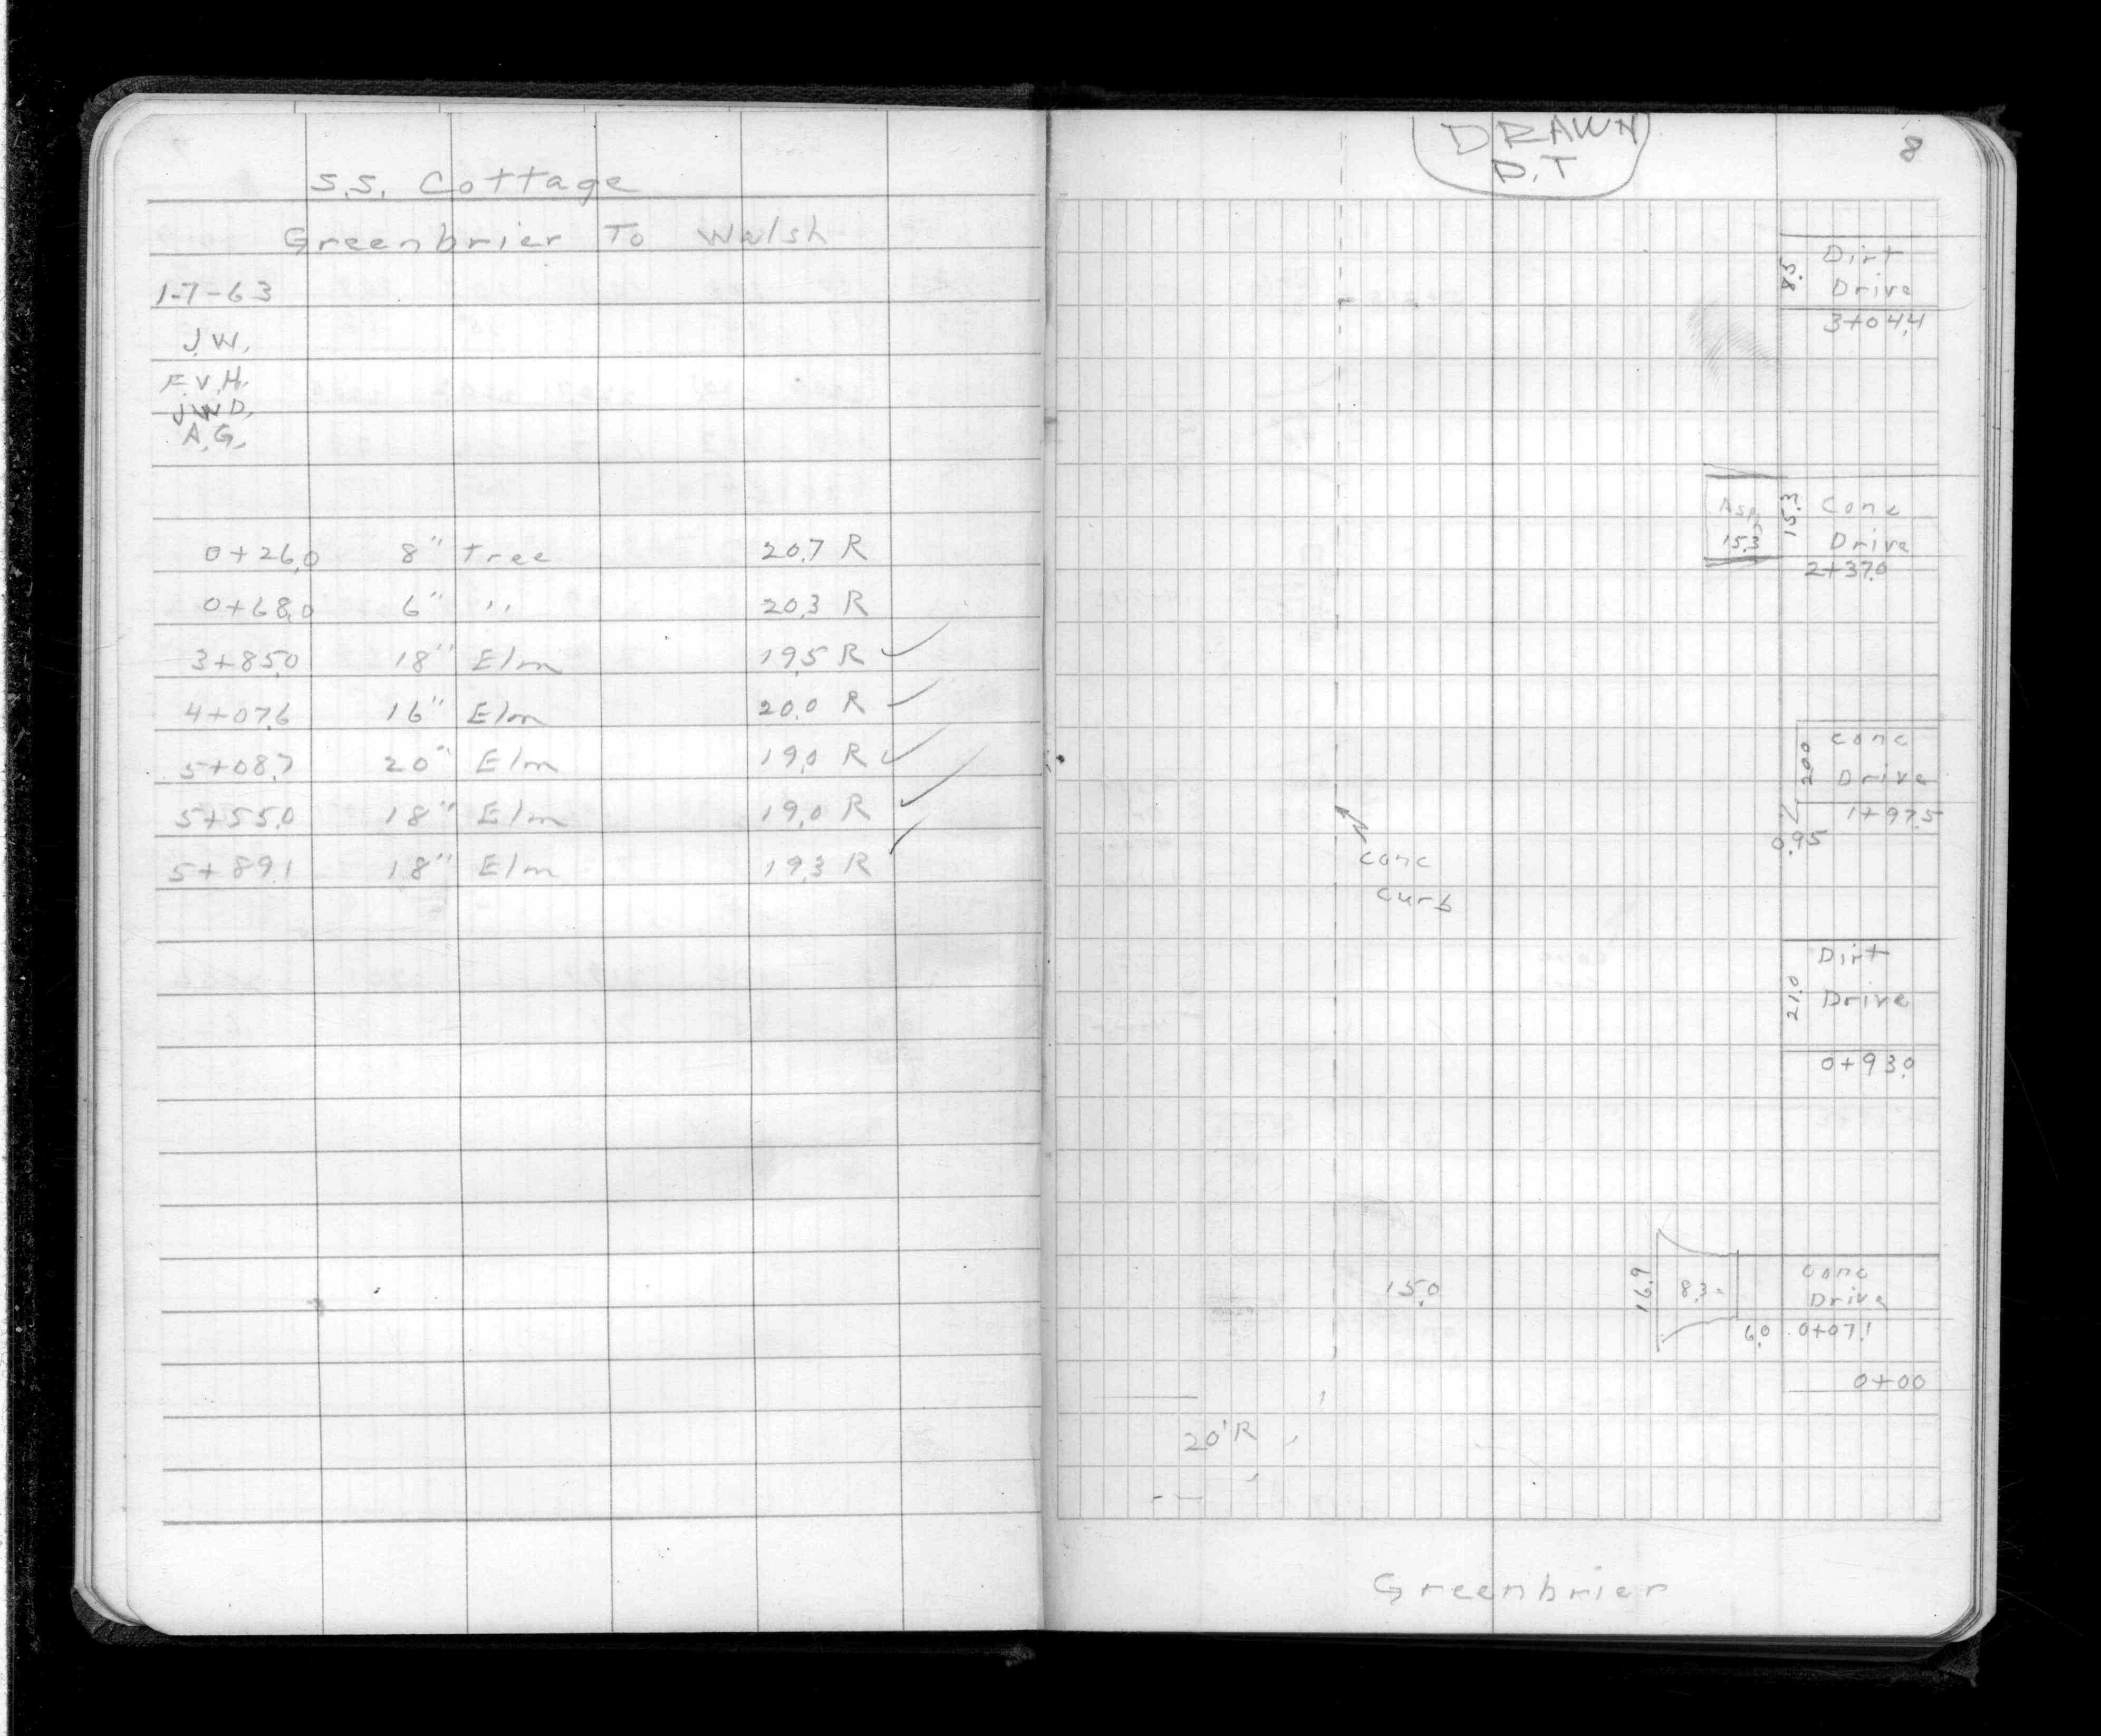 S.S. Cottage
Greenbrier To Walsh
1-7-63
J.W.
F.V.H.
J.W.D.
A.G.
0+26.0 8" Tree 20.7 R
0+68.0 6" " 20.3 R
3+85.0 18" Elm 19.5 R ✓
4+07.6 16" Elm 20.0 R ✓
5+08.7 20" Elm 19.0 R ✓
5+55.0 18" Elm 19.0 R ✓
5+89.1 18" Elm 19.3 R ✓
DRAWN
D.T
8
8.5 Dirt
Drive
3+04.4
Asp.
15.3
15.3 Conc
Drive
2+37.0
20.0 Conc
Drive
1+97.5
0.95
conc
curb
21.0 Dirt
Drive
0+93.0
15.0
16.9
8.3
Conc
Drive
6.0 0+07.1
0+00
20' R
Greenbrier